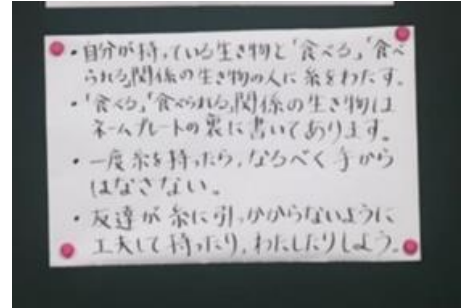 ・自分が持っている生き物と「食べる」「食べ
られる」関係の生き物の人に糸をわたす。
・「食べる」「食べられる」関係の生き物は
ネームプレートの裏に書いてあります。
・一度糸を持ったら、なるべく手から
はなさない。
・友達が糸に引っかからないように
工夫して持ったり、わたしたりしよう。